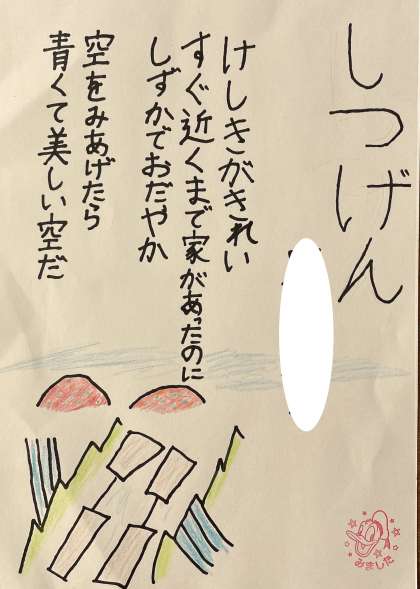 しつげん
けしきがきれい
すぐ近くまで家があったのに
しずかでおだやか
空をみあげたら
青くて美しい空だ
みました